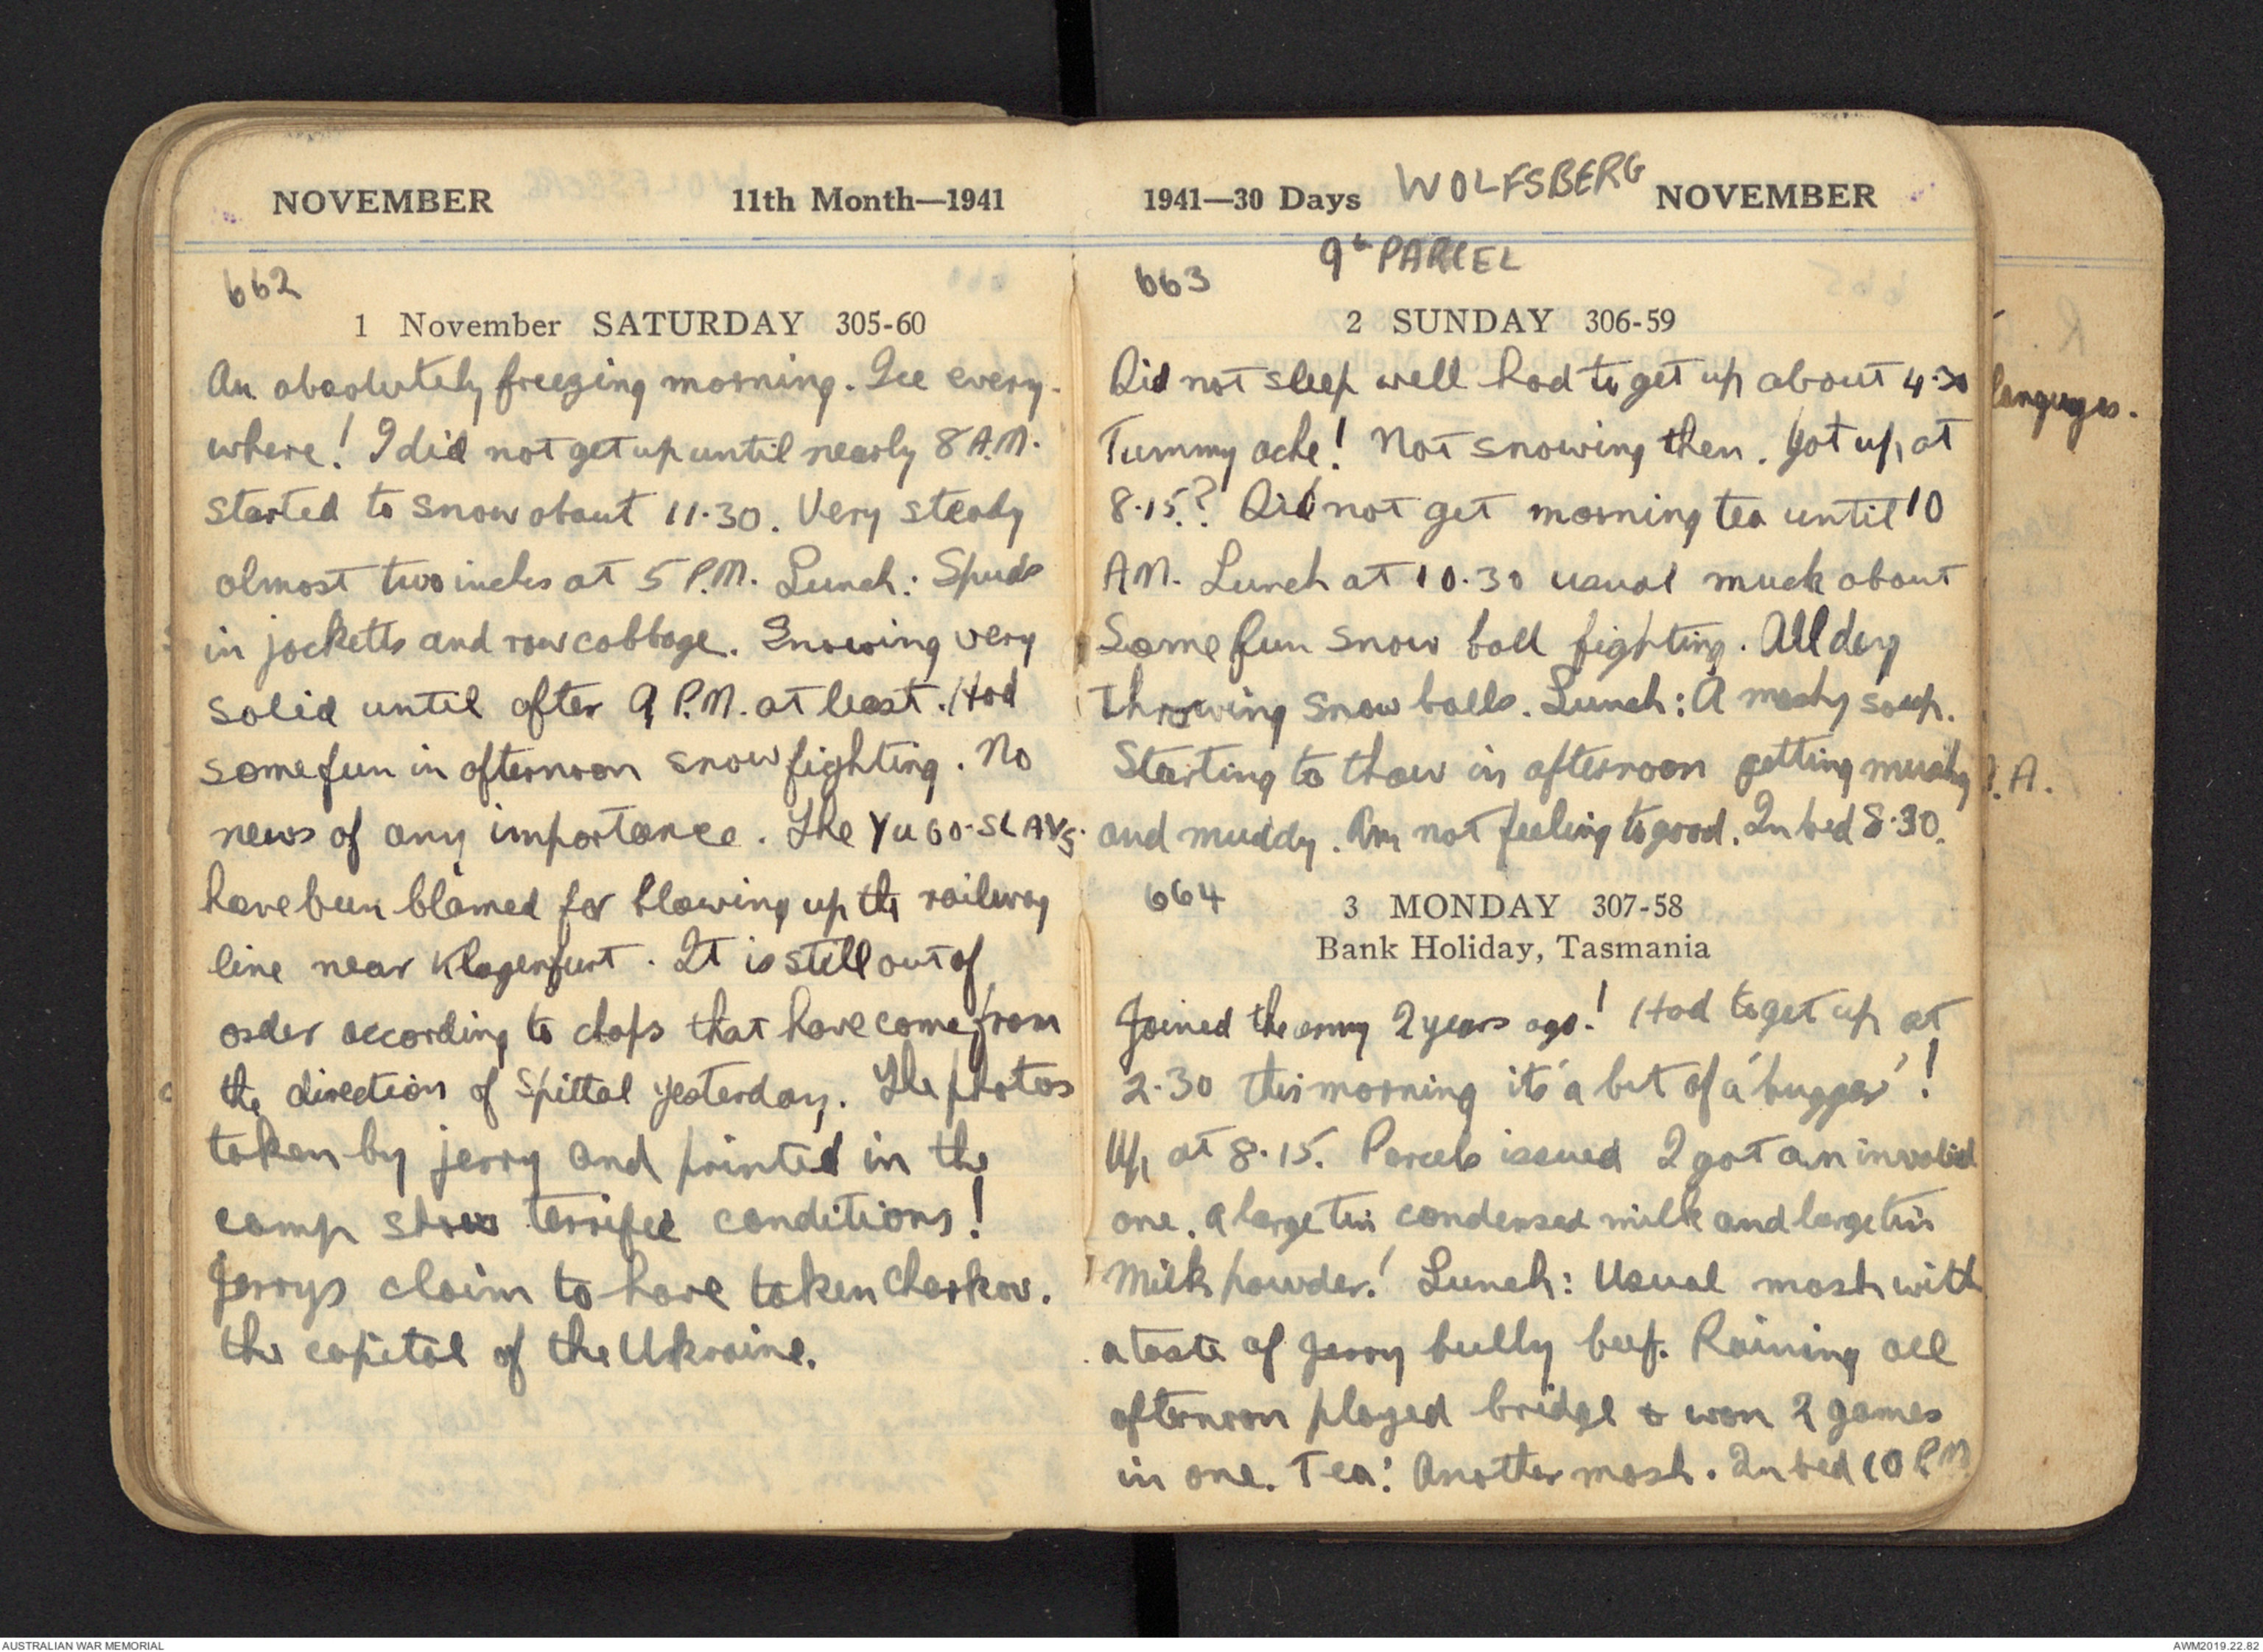 NOVEMBER 11th Month—1941
662
1 November SATURDAY 305-60
An absolutely freezing morning. Ice every-
where! I did not get up until nearly 8 A.M.
started to snow about 11.30. Very steady
almost two inches at 5 P.M. Lunch: Spuds
in jacketts and raw cabbage. Snowing very
solid until after 9 P.M. at least. Had
some fun in afternoon snow fighting. No
news of any importance. The YUGO-SLAVS.
have been blamed for blowing up the railway
line near Klagenfurt. It is still out of
order according to chaps that have come from
the direction of Spittal yesterday. The photos
taken by jerry and printed in the
camp show terrific conditions!
Jerrys claim to have taken Charkov.
the capital of the Ukraine.
1941—30 Days WOLFSBERG NOVEMBER
9t PARCEL
663
2 SUNDAY 306-59
Did not sleep well had to get up about 4.30
Tummy ache! Not snowing then. Got up at
8.15.? Did not get morning tea until 10
A.M. Lunch at 10.30 usual muck about
Some fun snow ball fighting. All day
throwing snow balls. Lunch: A mashy soup.
Starting to thaw in afternoon getting mushy
and muddy. Am not feeling to good. In bed 8.30.
664
3 MONDAY 307-58
Bank Holiday, Tasmania
Joined the army 2 years ago! Had to get up at
2.30 this morning its' a bit of a 'bugger'!
Up at 8.15. Parcels issued I got an invalid
one. a large tin condensed milk and large tin
Milk powder! Lunch: Usual mash with
a taste of Jerry bully beef. Raining all
afternoon played bridge & won 2 games
in one. Tea: Another mash. In bed 10 P.M
R.
languages.
P.A.
AUSTRALIAN WAR MEMORIAL
AWM2019.22.82